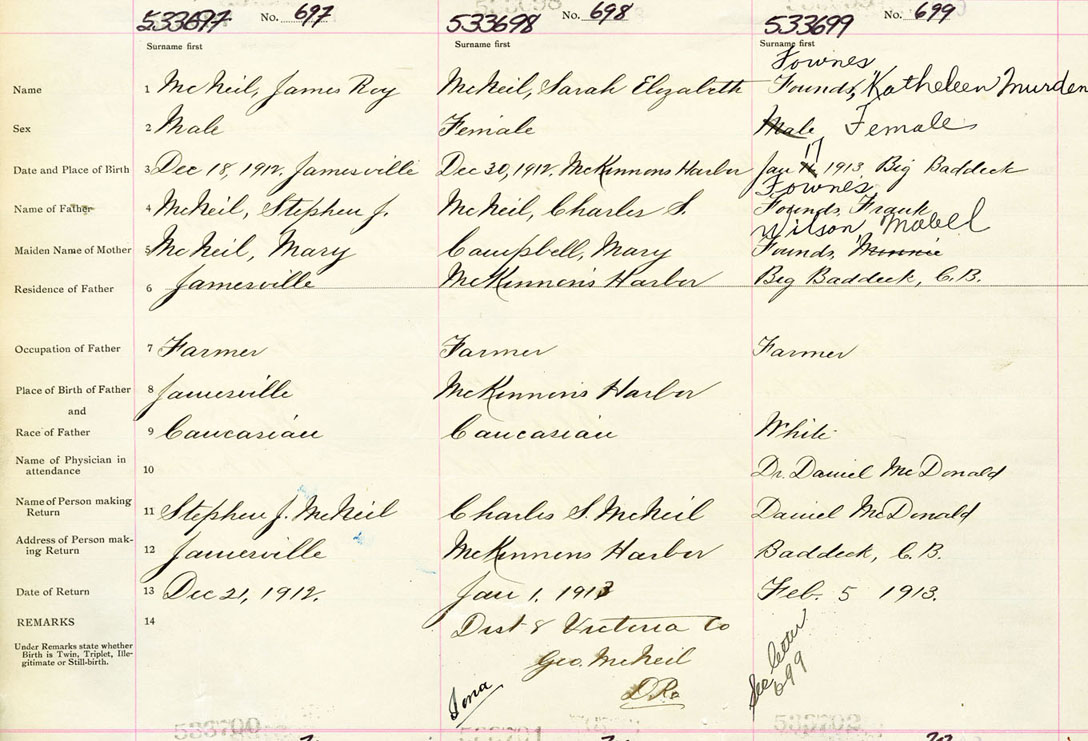 533697 No. 697 533698 No. 698 533699 No. 699
Surname first Surname first Surname first
Fownes
Name 1 McNeil, James Roy McNeil, Sarah Elizabeth Founds, Katheleen Murden
Sex 2 Male Female Male Female
17
Date and Place of Birth 3 Dec 18, 1912, Jamesville Dec 30, 1912. McKinnons Harbor Jan 1913 Big Baddeck
Fownes
Name of Father 4 McNeil, Stephen J. McNeil, Charles S. Founds, Frank
Wilson Mabel
Maiden Name of Mother 5 McNeil, Mary Campbell, Mary Founds, Minnie
Residence of Father 6 Jamesville McKinnon's Harbor Big Baddeck, C.B.
Occupation of Father 7 Farmer Farmer Farmer
Place of Birth of Father 8 Jamesville McKinnon's Harbor
and
Race of Father 9 Caucasian Caucasian White
Name of Physician in
attendance 10 Dr. Daniel McDonald
Name of Person making
Return 11 Stephen J. McNeil Charles S. McNeil Daniel McDonald
Address of Person mak-
ing Return 12 Jamesville McKinnons Harbor Baddeck, C.B.
Date of Return 13 Dec 21, 1912. Jan 1, 1913 Feb. 5 1913.
REMARKS 14 Dist 8 Victoria Co
Under Remarks state whether
Birth is Twin, Triplet, Ille-
gitimate or Still-birth.
Geo. McNeil
Iona
See letter
699
533700 533701 533702